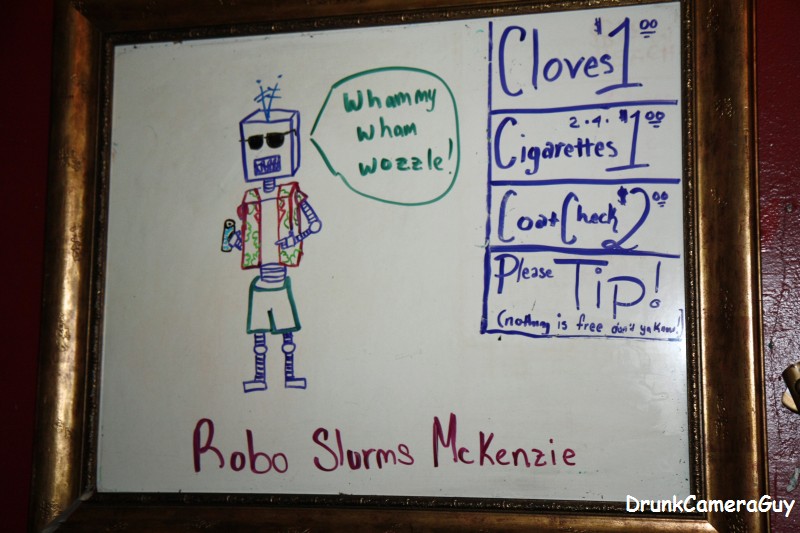 Whammy
Wham
Wozzle!
Cloves $1.00
Cigarettes 2.4. $1.00
Coat Check $2.00
Please Tip!
(nothing is free don't ya know!)
Robo Slurms McKenzie
DrunkCameraGuy